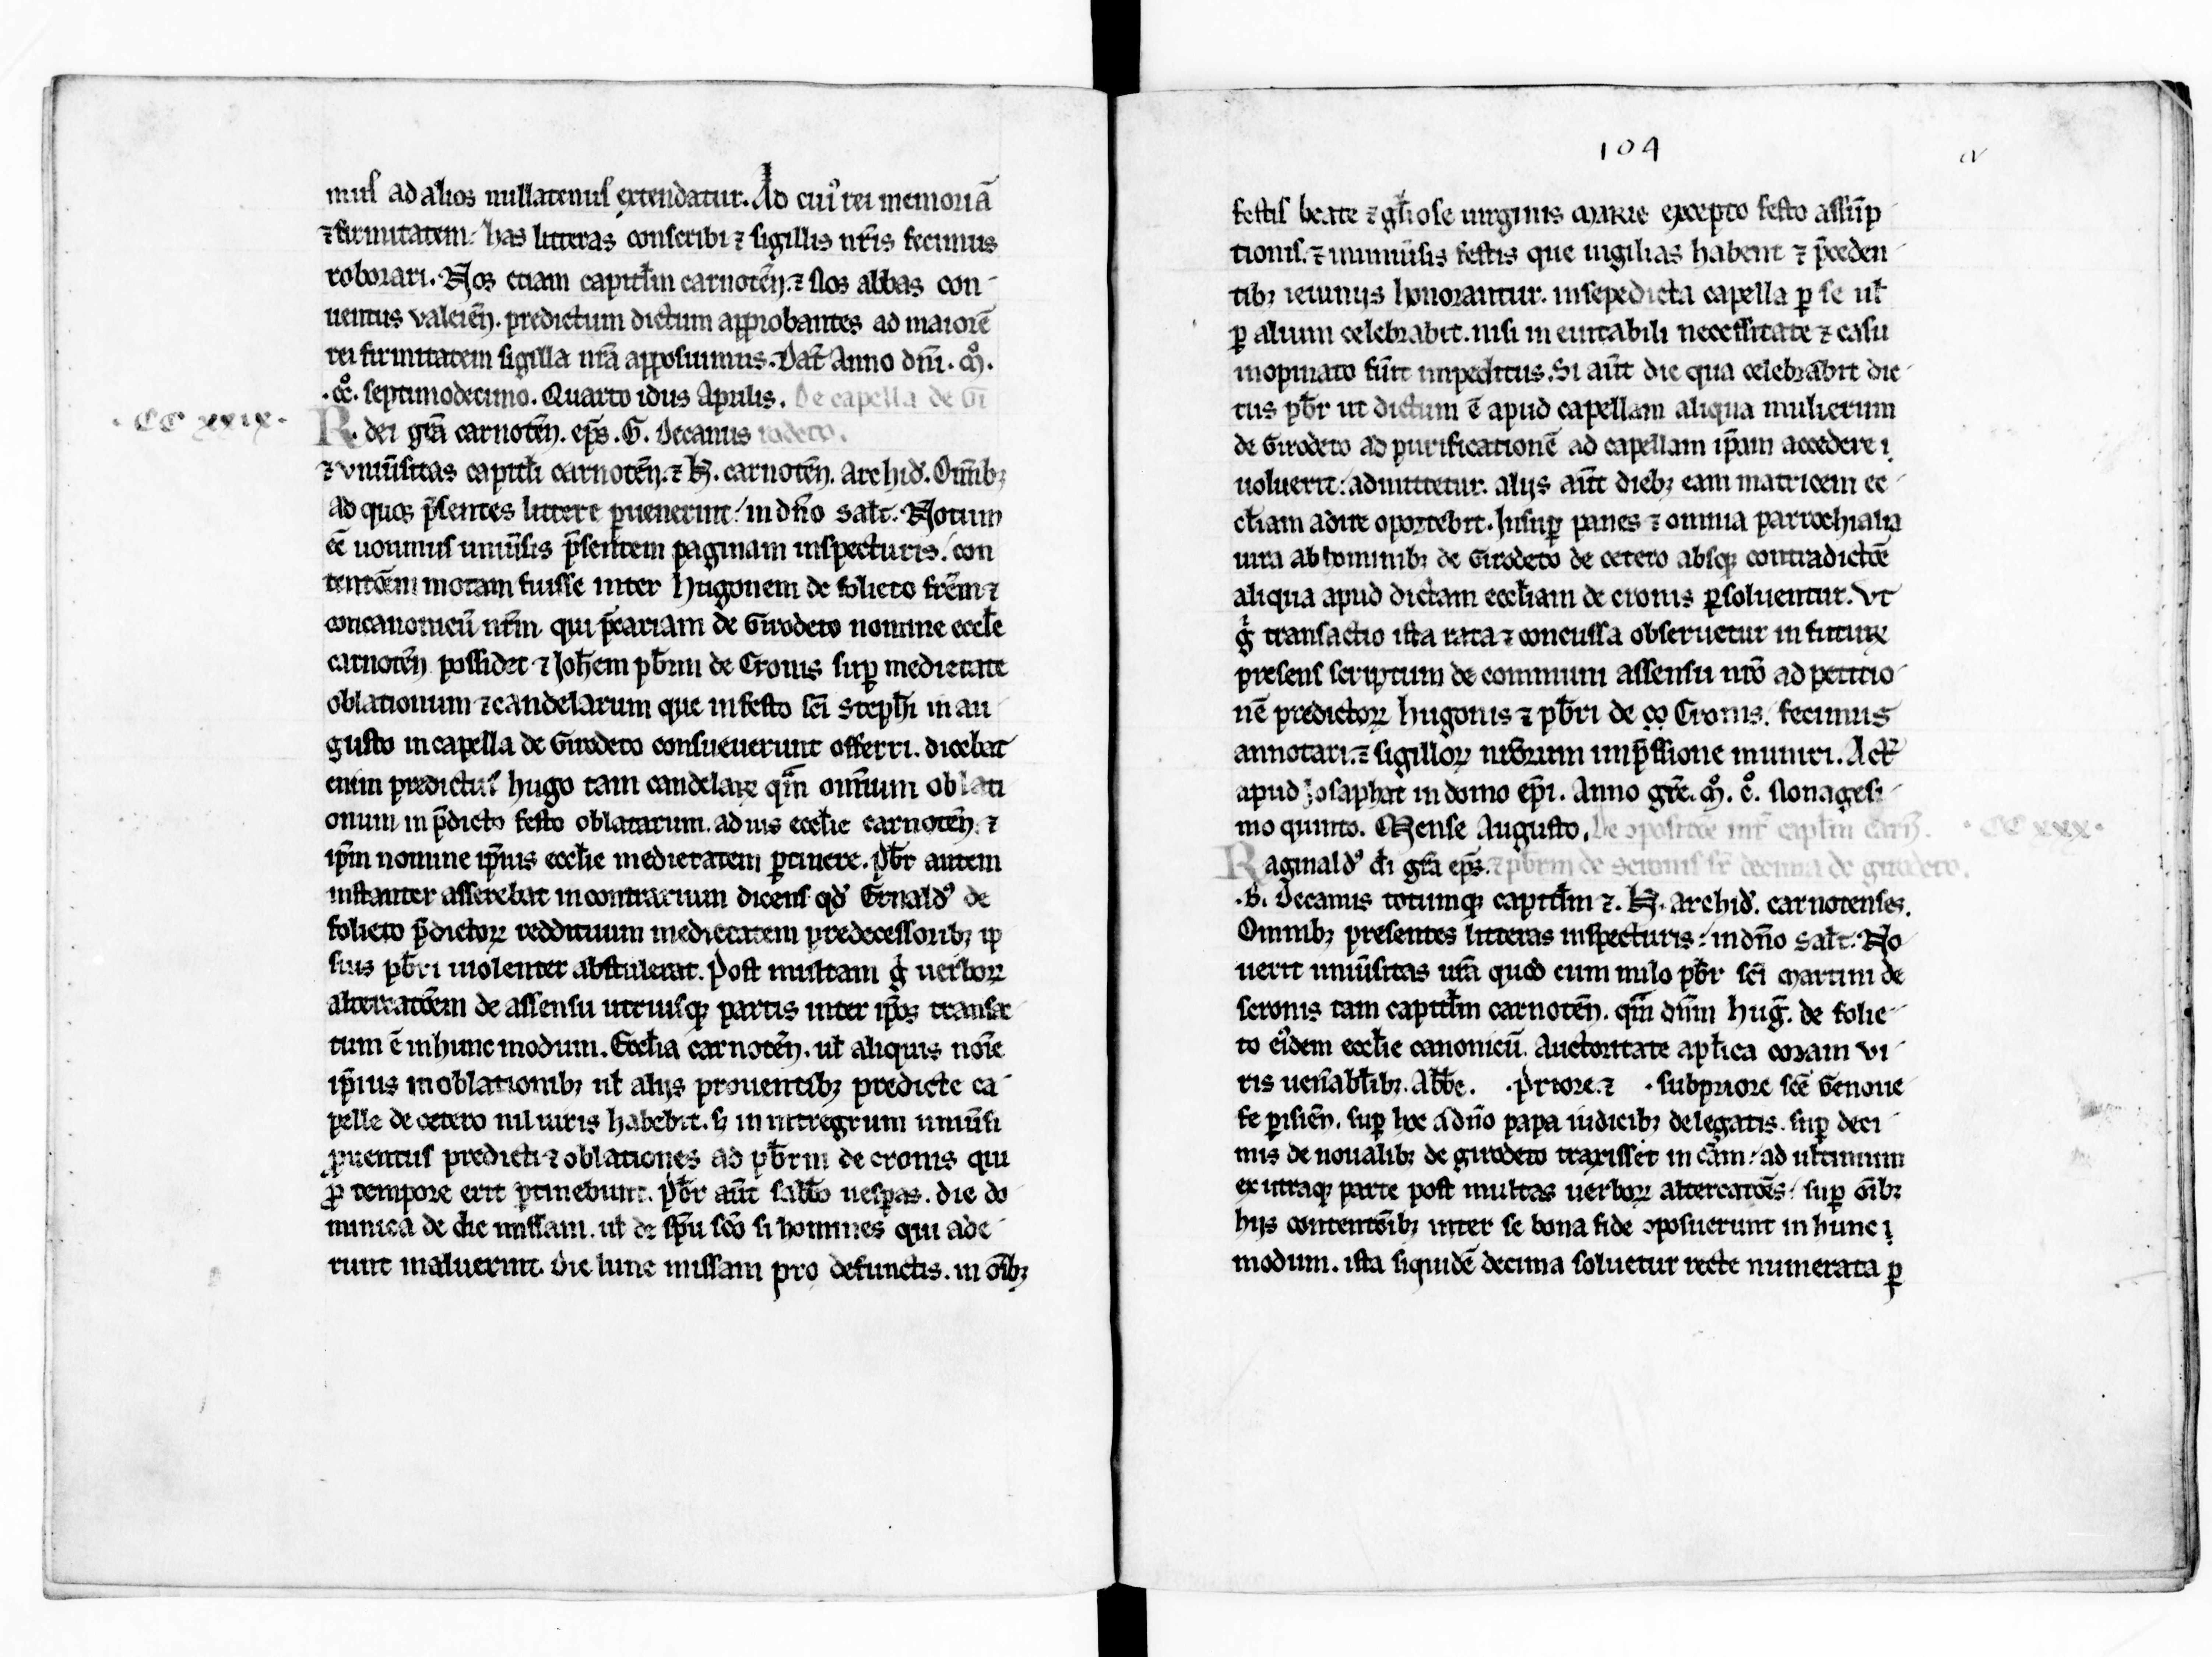 mus ad alios nullatenus extendatur. Ad cuiꝰ rei memoriā
⁊ firmitatem. has litteras conscribi ⁊ sigillis nr̄is fecimus
roborari. Nos etiam capitl̄m carnoteñ. ⁊ Nos abbas con-
uentus valeieñ. predictum dictum approbantes ad maiorē
rei firmitatem sigilla nr̄a apposuimus. Dat̄ Anno dn̄i. m̊.
.cc̊. septimodecimo. Quarto idus Aprilis. De capella de Gi
. CC xxix.
R. dei gr̄a carnoteñ. ep̄s. G. Decanus rodeto.
⁊ vniūsitas capitl̄i carnoteñ. ⁊ H. carnoteñ. archid̄. Om̄ibꝫ
ad quos p̄sentes littere ꝑuenerint. in dn̄o sal̄t. Notum
eē uolumus uniūsis p̄sentem paginam inspecturis. con
tentōem motam fuisse inter hugonem de folieto fr̄em ⁊
concanonicū nr̄m qui p̄cariam de Girodeto nomine eccl̄e
carnoteñ possidet ⁊ Joh̄em pb̄rm de Cronis suꝑ medietate
oblationum ⁊ candelarum que in festo sc̄i steph̄i in au
gusto in capella de Girodeto consueuerunt offerri. dicebat
enim predictus hugo tam candelaꝝ qm̄ omīum oblati
onum in p̄dicto festo oblatarum. ad ius eccl̄ie carnoteñ. ⁊
ip̄m nomine ip̄ius eccl̄ie medietatem ꝑtinere. Pb̄r autem
instanter asserebat in contrarium dicens qd̄ Ernaldꝰ de
folieto p̄dictoꝝ reddituum medietatem predecessoribꝫ ip
sius pb̄ri uiolenter abstulerat. Post multam g̊ uerboꝝ
altercatōem de assensu utriusqꝫ partis inter ip̄os transac
tum ē in hunc modum. Eccl̄ia carnoteñ. ul̄ aliquis noīe
ip̄ius in oblationibꝫ ul̄ alijs prouentibꝫ predicte ca-
pelle de cetero nil iuris habebit. sꝫ in integrum uniūsi
ꝓuentus predicti ⁊ oblationes ad pb̄rm de cronis qui
ꝓ tempore erit ꝑtinebunt. Pb̄r aūt sabb̄o uesꝑas. die do
minica de die missam. ul̄ de sp̄u sc̄o si homines qui ade-
runt maluerint. Die lune missam pro defunctis. in om̄ibꝫ
104
cv
festis beate ⁊ gl̄iose uirginis marie excepto festo assūp-
tionis. ⁊ in uniūsis festis que uigilias habent ⁊ p̄ceden-
tibꝫ ieiunijs honorantur. in sepedicta capella ꝑ se ul̄
ꝑ alium celebrabit. nisi in euitabili necessitate ⁊ casu
inopinato fūit impeditus. Si aūt die qua celebrabit dic-
tus pb̄r ut dictum ē apud capellam aliqua mulierum
de Girodeto ad purificationē ad capellam ip̄am accedere
uoluerit. admittetur. alijs aūt diebꝫ eam matricem ec-
cl̄iam adire oportebit. Insuꝑ panes ⁊ omnia parrochialia
iura ab hominibꝫ de Girodeto de cetero absqꝫ contradictōe
aliqua apud dictam eccl̄iam de cronis ꝑsoluentur. Vt
g̊ transactio ista rata ⁊ concussa obseruetur in futurꝝ
presens scriptum de communi assensu nr̄o ad petitio-
nē predictoꝝ hugonis ⁊ pb̄ri de co Cronis. fecimus
annotari. ⁊ sigilloꝝ nr̄orum imp̄ssione muniri. Act̄
apud Josaphat in domo ep̄i. Anno gr̄e. m̊. c̊. Nonagesi-
mo quinto. Mense Augusto. De ꝯpositōe int̄ capl̄m carñ. . CC xxx.
Raginaldꝰ d̄i gr̄a ep̄s. ⁊ pb̄rm de scronis sr̄ decima de girodeto.
.B. Decanus totumqꝫ capitl̄m ⁊. H. archid̄. carnotenses.
Omnibꝫ presentes litteras inspecturis. in dn̄o sal̄t. No-
uerit uniūsitas ur̄a quod cum milo pb̄r sc̄i martini de
scronis tam capitl̄m carnoteñ. qm̄ dn̄m huḡ. de folie-
to eiꝰdem eccl̄ie canonicū. Auctoritate apl̄ica coram vi-
ris uen̄abl̄ibꝫ. Abb̄e. . priore. ⁊ . subpriore sc̄e Genoue-
fe ꝑisieñ. suꝑ hoc a dn̄o papa iudicibꝫ delegatis. suꝑ deci-
mis de noualibꝫ de girodeto traxisset in cām. ad ultimum
ex utraqꝫ parte post multas uerboꝝ altercatōes. suꝑ oībꝫ
hijs contentōibꝫ inter se bona fide ꝯposuerunt in hunc
modum. ista siquidē decima soluetur recte numerata ꝑ